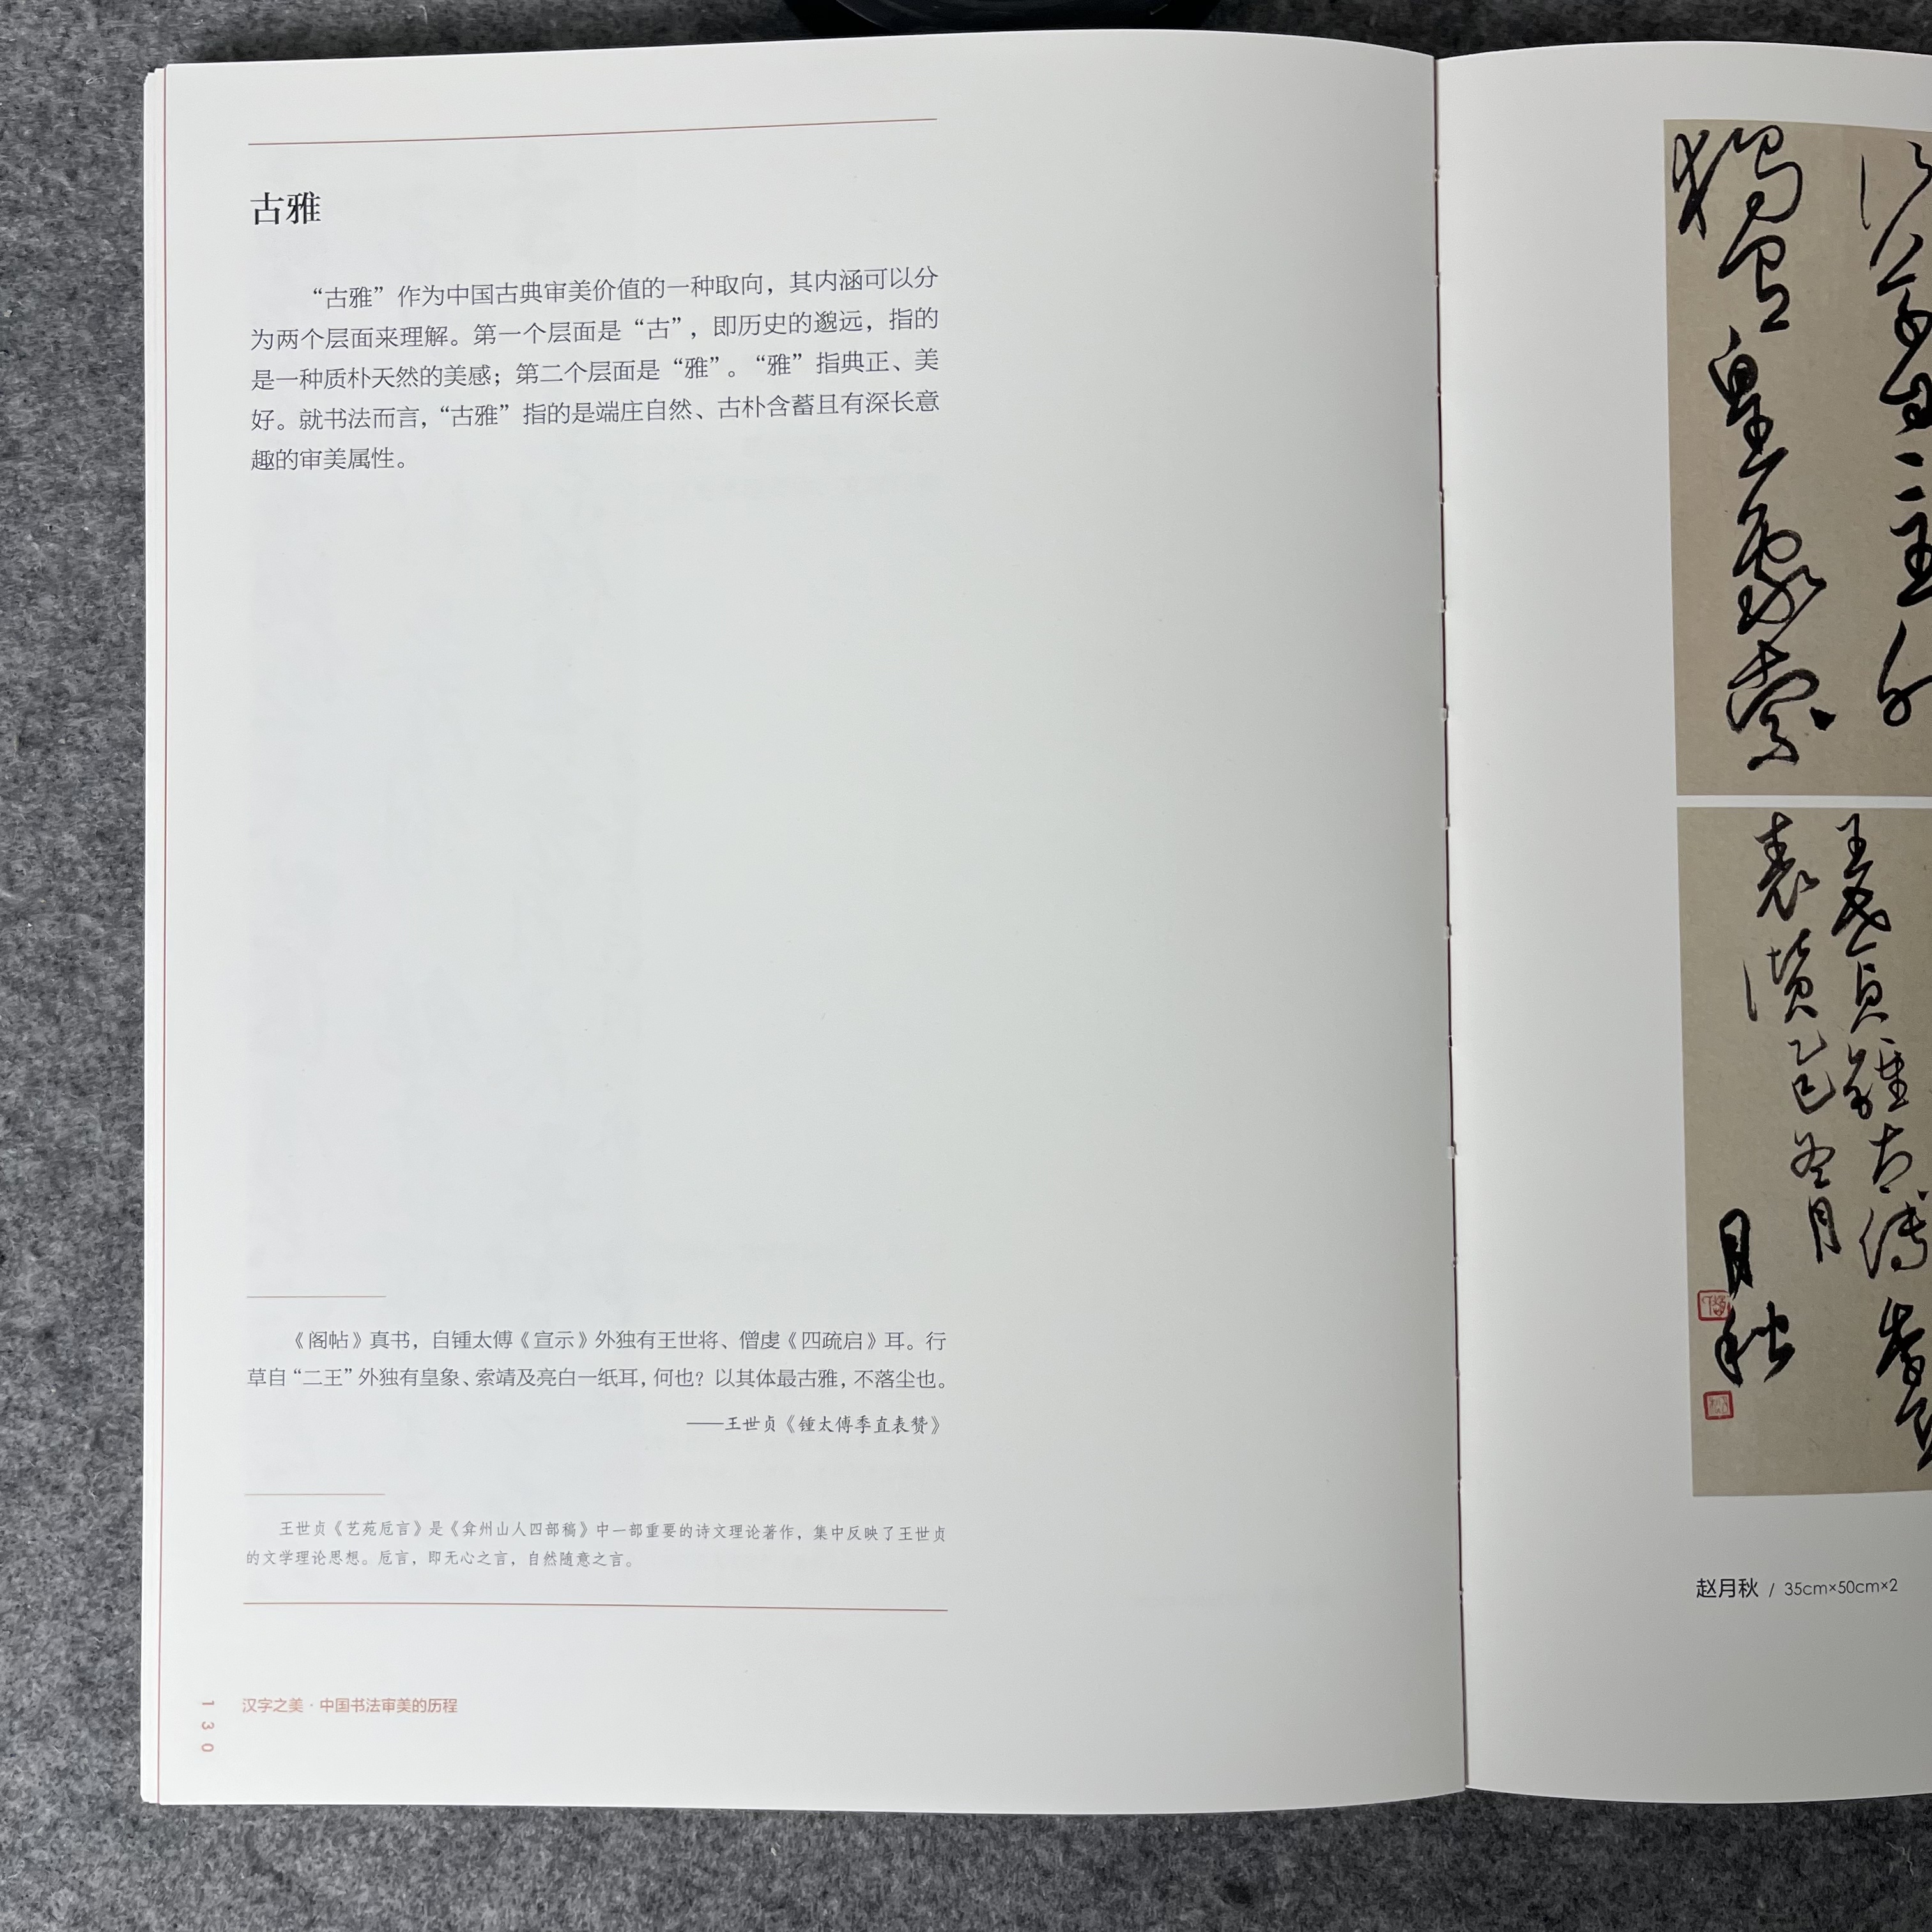 古雅
“古雅”作为中国古典审美价值的一种取向，其内涵可以分
为两个层面来理解。第一个层面是“古”，即历史的邈远，指的
是一种质朴天然的美感；第二个层面是“雅”。“雅”指典正、美
好。就书法而言，“古雅”指的是端庄自然、古朴含蓄且有深长意
趣的审美属性。
《阁帖》真书，自锺太傅《宣示》外独有王世将、僧虔《四疏启》耳。行
草自“二王”外独有皇象、索靖及亮白一纸耳，何也？以其体最古雅，不落尘也。
——王世贞《锺太傅季直表赞》
王世贞《艺苑卮言》是《弇州山人四部稿》中一部重要的诗文理论著作，集中反映了王世贞
的文学理论思想。卮言，即无心之言，自然随意之言。
130
汉字之美·中国书法审美的历程
草自二王外
獨有皇象索
王世貞鍾太傅季直
表讚乙巳冬月
月秋
赵月秋 / 35cm×50cm×2